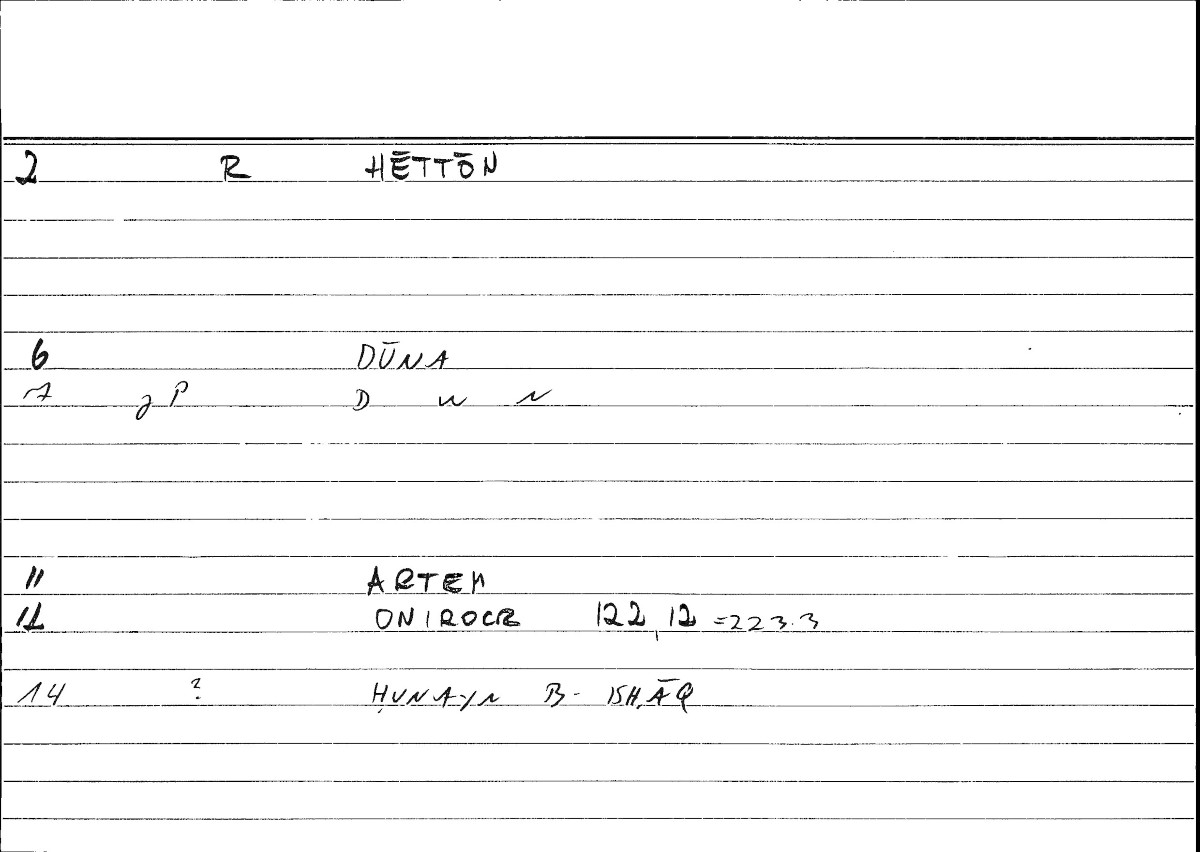 2 R HĒTTŌN
6 DŪNA
7 gP D w N
11 ARTEM
12 ONIROCR 122,12 =223.3
14 ? ḤUNAYN B- ISḤĀQ